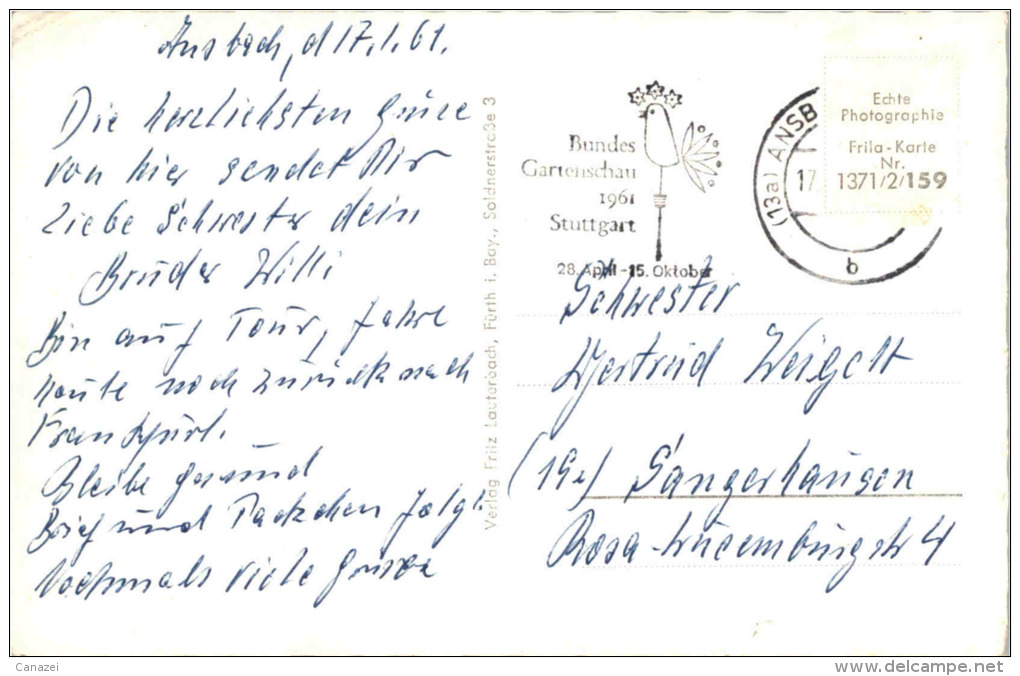 Ansbach, d 17.1.61.
Die herzlichsten Grüsse
von hier sendet Dir
Liebe Schwester dein
Bruder Willi
Bin auf Tour, fahre
heute noch zurück nach
Frankfurt.
Bleibe gesund
Brief und Päckchen folgt.
Nochmals viele Grüsse
Verlag Fritz Lauterbach, Fürth i. Bay., Soldnerstraße 3
Bundes
Gartenschau
1961
Stuttgart
28. April - 15. Oktober
(13a) ANSB
17
b
Echte
Photographie
Frila - Karte
Nr.
1371/2/159
Schwester
Gertrud Weigelt
(19a) Sangerhausen
Rosa-Luxemburgstr 4
Canazei
www.delcampe.net